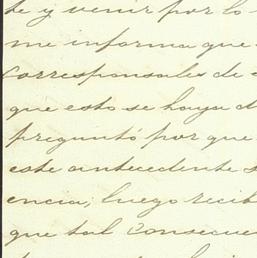 te y venir por lo
me informa que
corresponsales de
que esto se haya d
preguntó por que
este antecedente s
encia, luego recib
que tal consecuen